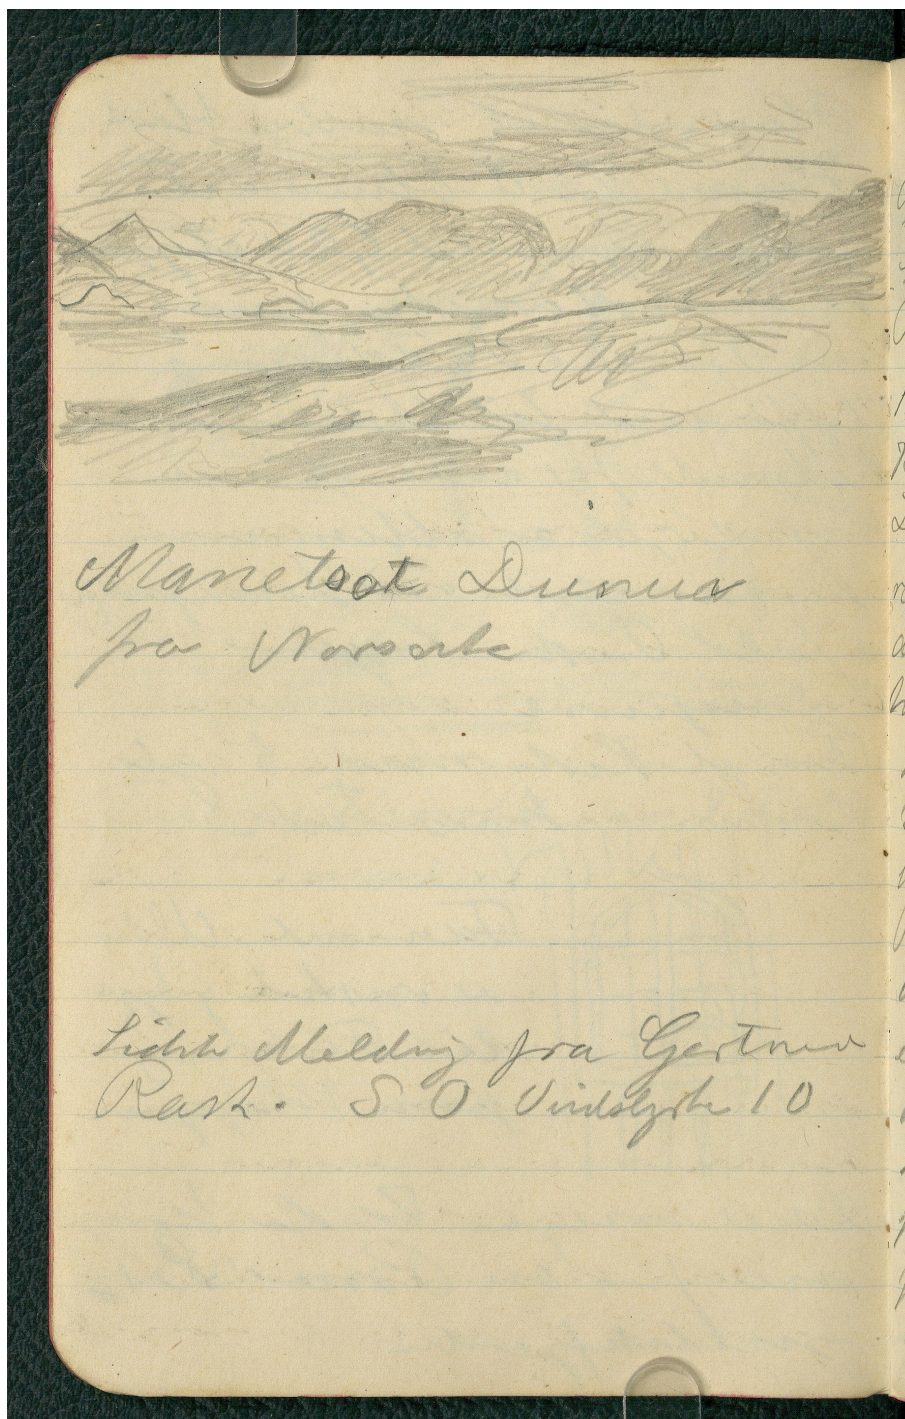 Manetsot Dunua
fra Narsak
Sidste Melding fra Gertrud
Rask. S O Vindstyrke 10